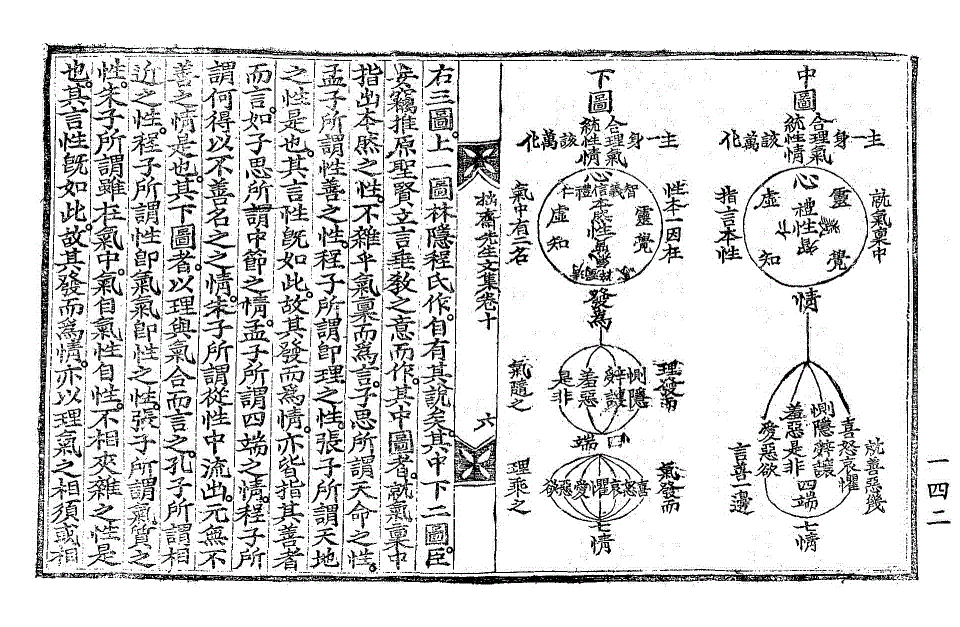 中圖
合理氣
統性情
主一身
該萬化
心
禮性
虛靈
知覺
就氣稟中
指言本性
情
惻隱辭讓
羞惡是非四端
喜怒哀懼
愛惡欲
就善惡幾
言善一邊
七情
下圖
合理氣
統性情
主一身
該萬化
心
仁禮信義智
本然性
虛靈
知覺
性本一因在
氣中有二名
發為
惻隱
辭讓
羞惡
是非
四端
理發而
氣隨之
喜怒哀懼愛惡欲
氣發而
理乘之
七情
拙齋先生文集卷十
六
右三圖上一圖林隱程氏作自有其說矣其中下二圖臣
妄竊推原聖賢立言垂教之意而作其中圖者就氣稟中
指出本然之性不雜乎氣稟而為言子思所謂天命之性
孟子所謂性善之性程子所謂即理之性張子所謂天地
之性是也其言性既如此故其發而為情亦皆指其善者
而言如子思所謂中節之情孟子所謂四端之情程子所
謂何得以不善名之之情朱子所謂從性中流出元無不
善之情是也其下圖者以理與氣合而言之孔子所謂相
近之性程子所謂性即氣氣即性之性張子所謂氣質之
性朱子所謂雖在氣中氣自氣性自性不相夾雜之性是
也其言性既如此故其發而為情亦以理氣之相須或相
一四二